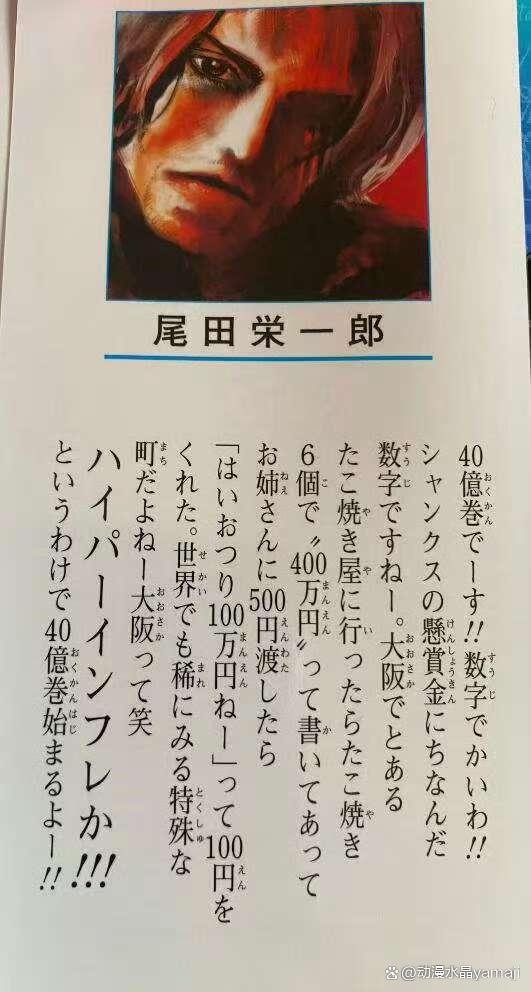 尾田栄一郎
40億巻でーす!!数字でかいわ!!
シャンクスの懸賞金にちなんだ
数字ですねー。大阪でとある
たこ焼き屋に行ったらたこ焼き
6個で〝400万円〟って書いてあって
お姉さんに500円渡したら
「はいおつり100万円ねー」って100円を
くれた。世界でも稀にみる特殊な
町だよねー大阪って笑
ハイパーインフレか!!!
というわけで40億巻始まるよー!!
@动漫水晶yamaji